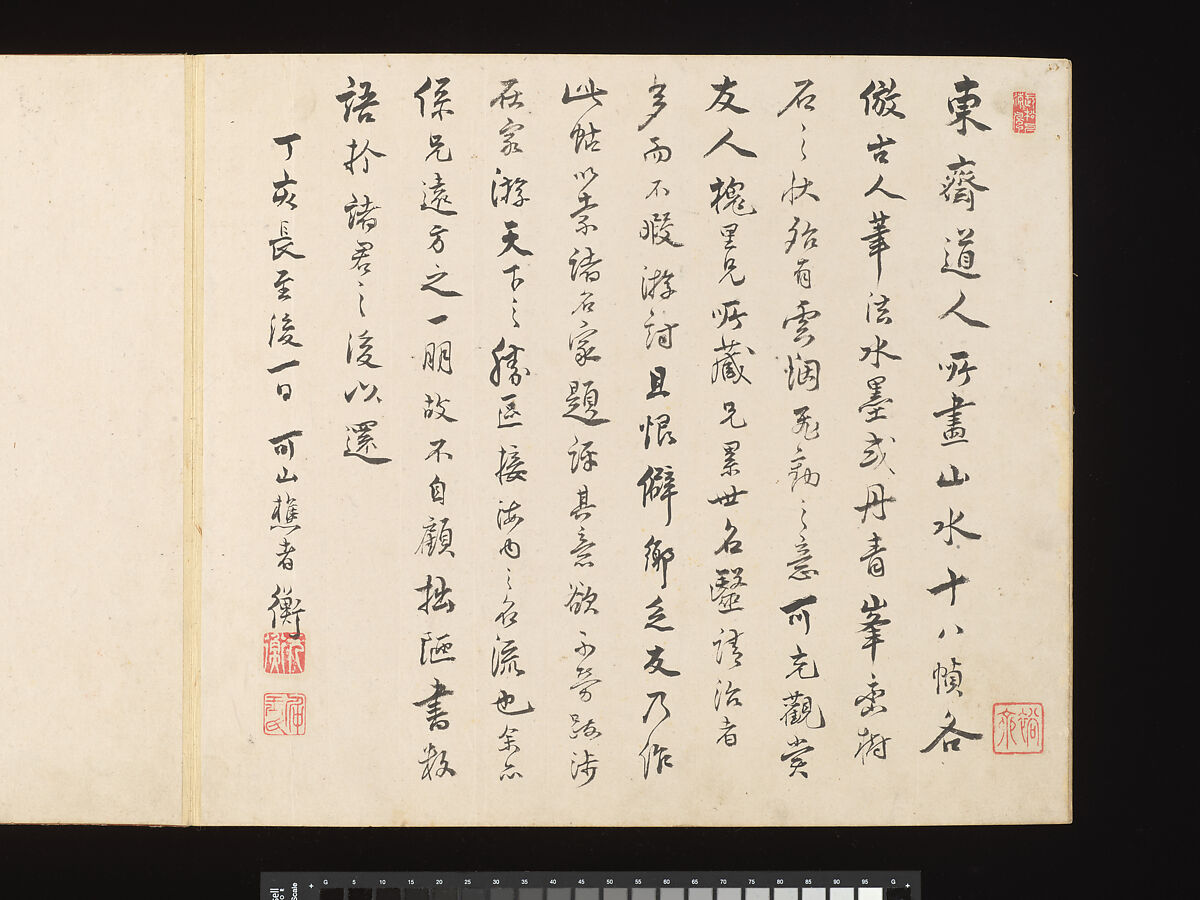 東齋道人所畫山水十八幀各
倣古人筆法水墨或丹青峯巒樹
石之狀殆有雲烟飛動之意可充觀賞
友人槐里兄所藏兄累世名醫請治者
多而不暇游討且恨僻鄉乏友乃作
此帖以索諸名家題評其意欲不勞跋涉
在家游天下之勝區接海内之名流也余亦
係兄遠方之一朋故不自顧拙陋書数
語於諸君之後以還
丁亥長至後一日 可山樵者衡
G 5 10 15 20 25 30 35 40 45 50 55 60 65 70 75 80 85 90 95 G
Scale